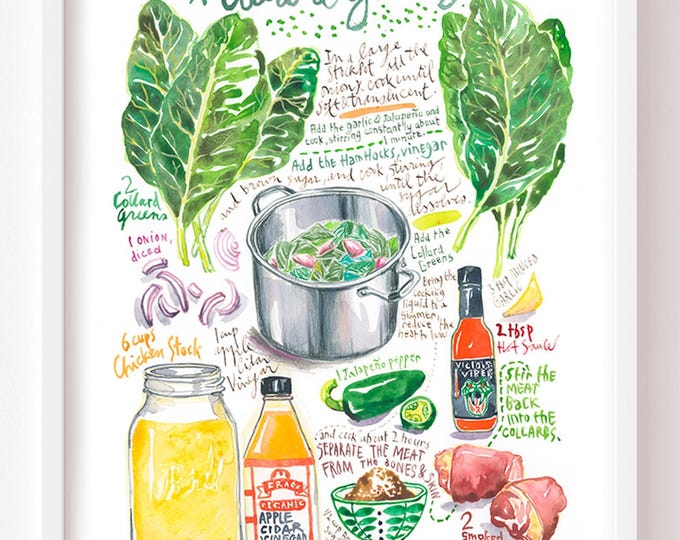 In a large
Stockpot add the
onions, cook until
soft & translucent
Add the garlic & Jalapeño and
cook, stirring constantly about
1 minute.
Add the Ham Hocks, vinegar
and brown sugar, and cook stirring
until the
sugar
dissolves.
2
Collard
greens
1 ONION,
diced
Add the
Collard
Greens
Bring the
cooking
liquid to a
simmer,
reduce the
heat to low
3 tbsp MINCED
GARLIC
6 cups
Chicken Stock
1 cup
Apple
Cider
Vinegar
2 tbsp
Hot Sauce
VICIOUS
VIPER
1 Jalapeño pepper
Stir the
MEAT
BACK
into the
COLLARDS.
and cook about 2 hours
SEPARATE THE MEAT
FROM THE BONES & SKIN
Ball
BRAGG
ORGANIC
APPLE
CIDER
VINEGAR
1/2 cup
2
Smoked